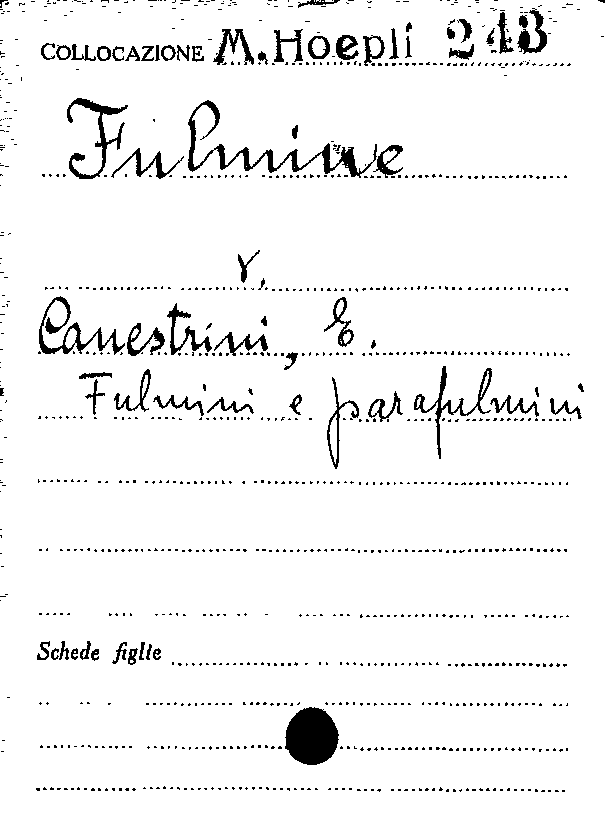 COLLOCAZIONE M. Hoepli 243
Fulmine
v.
Canestrini, E.
Fulmini e parafulmini
Schede figlie